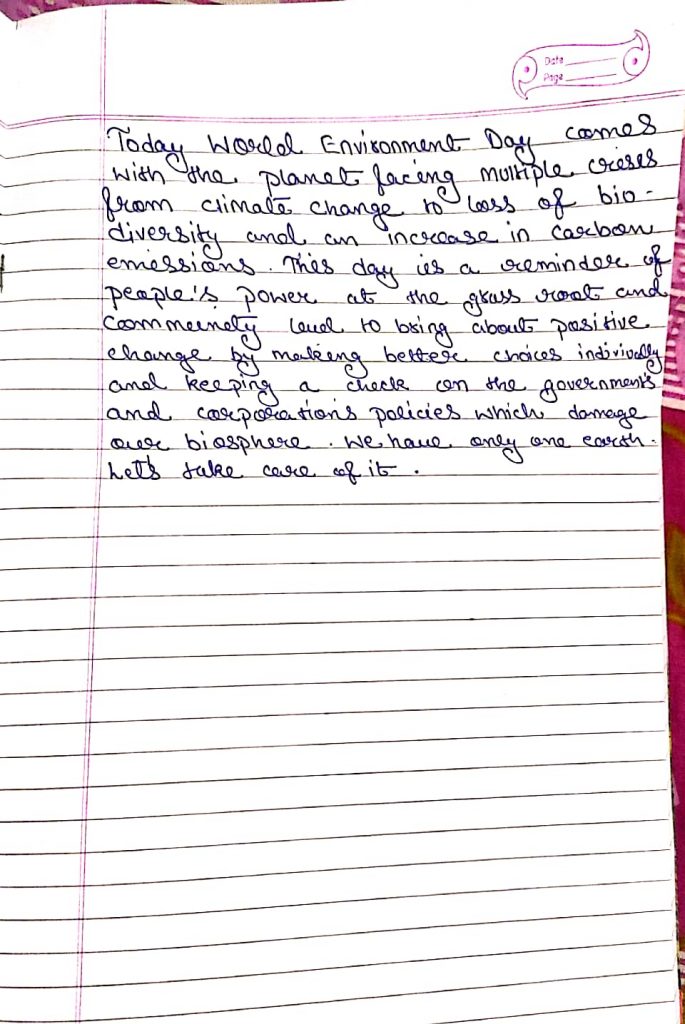 Date
Page
Today World Environment Day comes
with the planet facing multiple crises
from climate change to loss of bio-
diversity and an increase in carbon
emissions. This day is a reminder of
people's power at the grass root and
community level to bring about positive
change by making better choices indivivally
and keeping a check on the government's
and corporation's policies which damage
our biosphere. We have only one earth.
Let's take care of it.